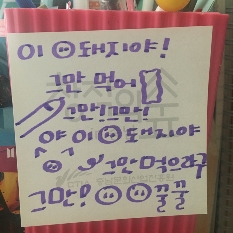 이 돼지야!
그만 먹어
그만! 그만!
야 이 돼지야
그만 먹으라구
그만! 꿀꿀